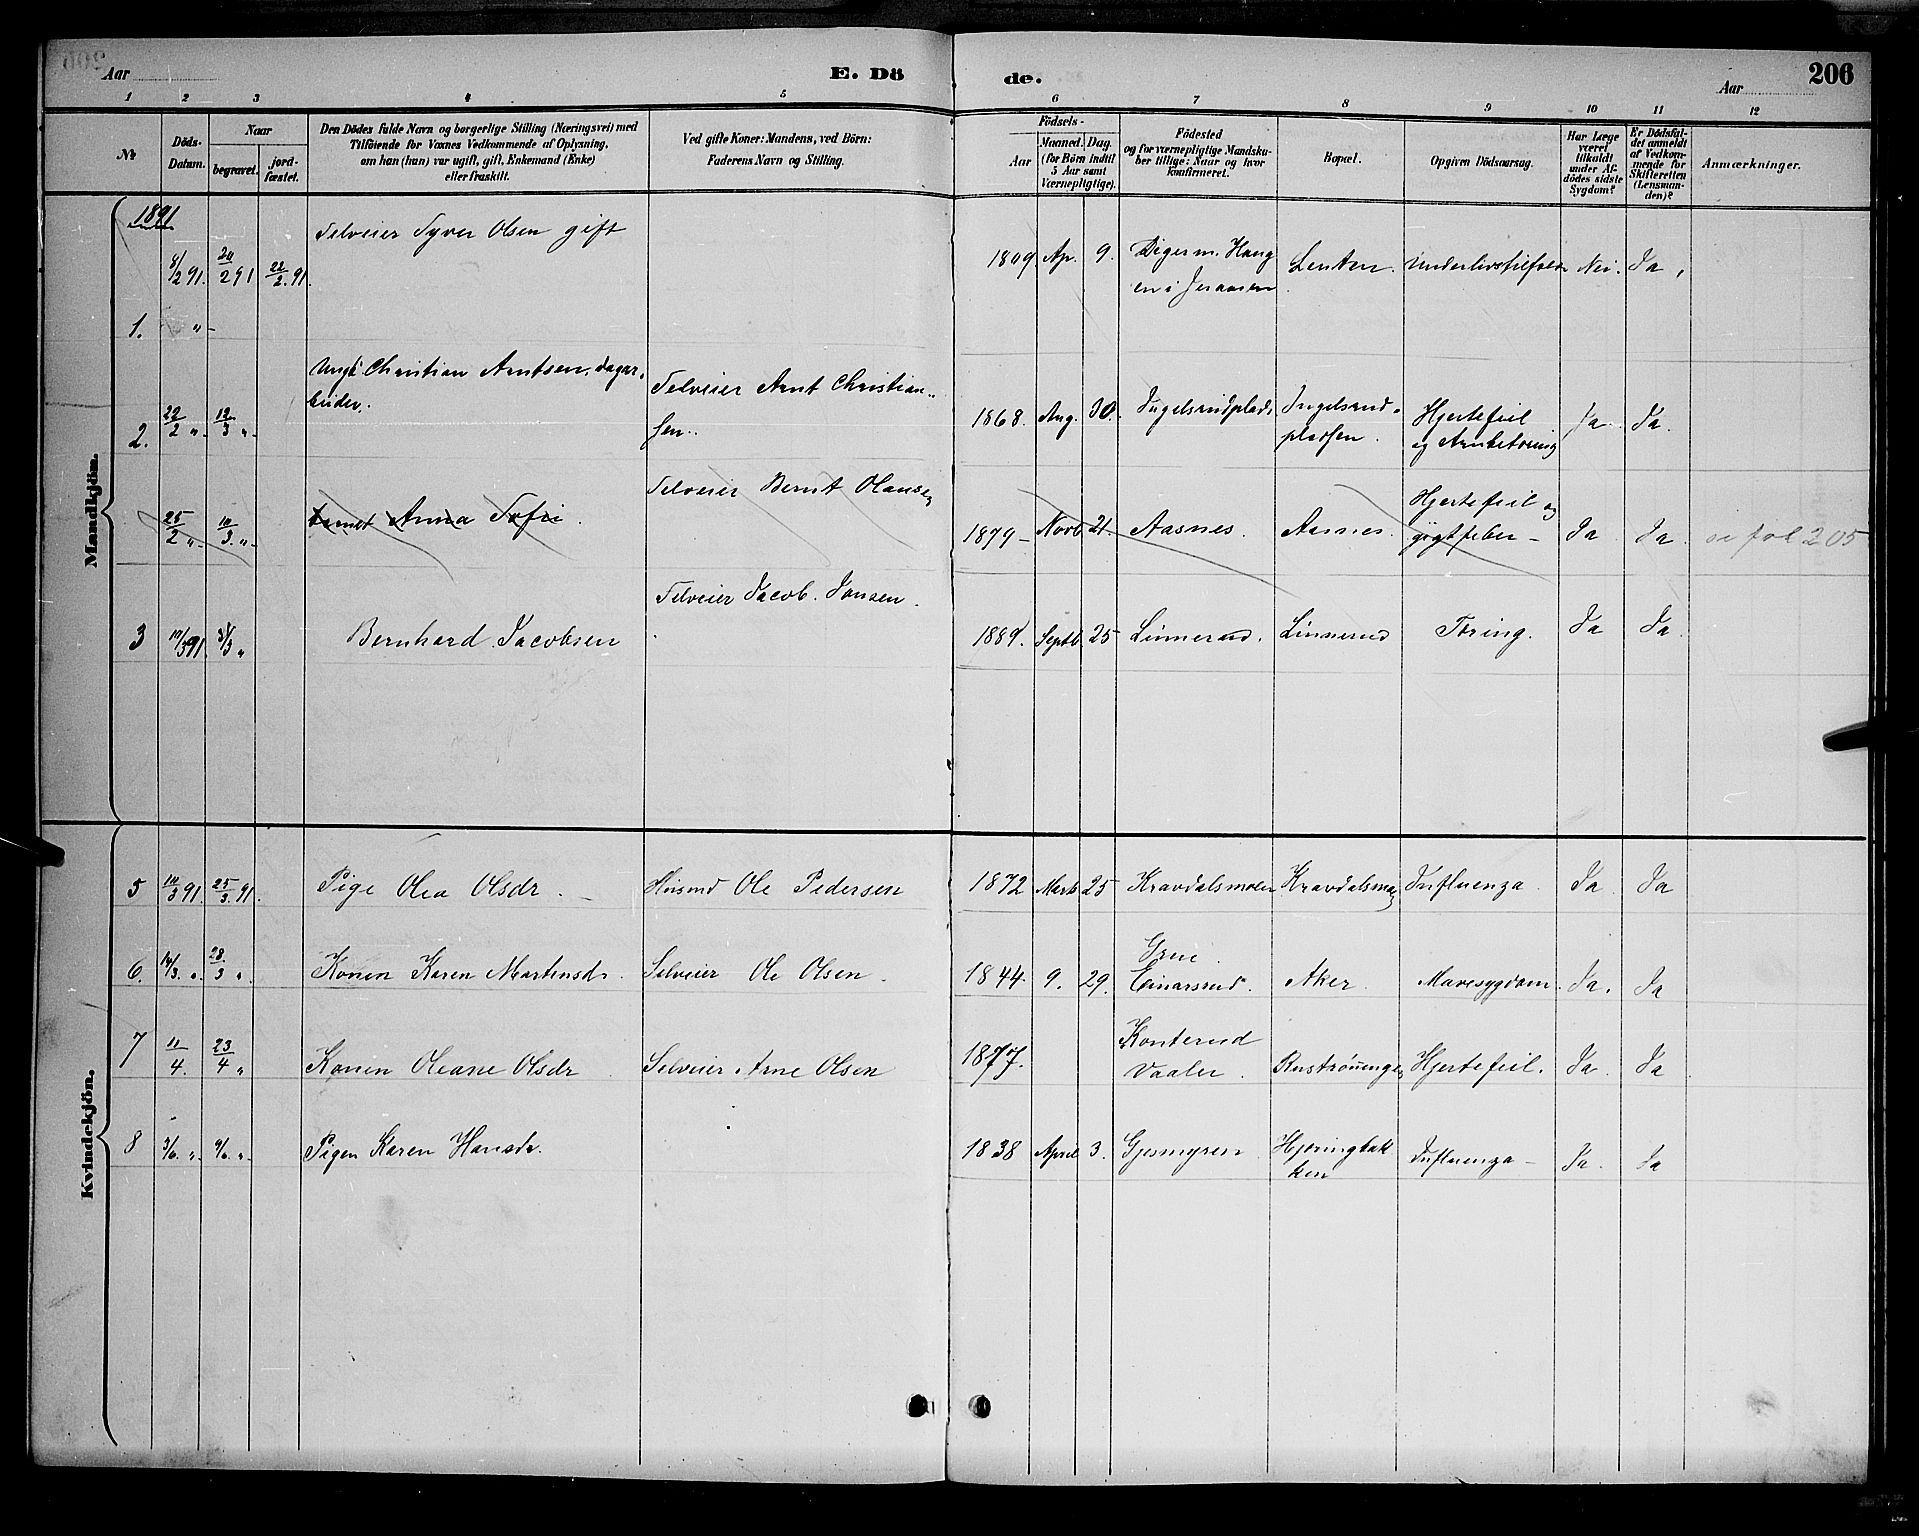 Aar
E. Dö
de.
Aar
206
1 2 3 4 5 6 7 8 9 10 11 12
№
Döds-Datum.
Naar
begravet.
jord-fæstet.
Den Dödes fulde Navn og borgerlige Stilling (Næringsvei) med
Tilföiende for Voxnes Vedkommende af Oplysning,
om han (hun) var ugift, gift, Enkemand (Enke)
eller fraskilt.
Ved gifte Koner: Mandens, ved Börn:
Faderens Navn og Stilling.
Födsels-
Aar
Maaned. Dag.
(for Börn indtil
5 Aar samt
Værnepligtige).
Födested
og for værnepligtige Mandska-
ber tillige: Naar og hvor
konfirmeret.
Bopæl.
Opgiven Dödsaarsag.
Har Læge
været
tilkaldt
under Af-
dödes sidste
Sygdom?
Er Dödsfal-
det anmeldt
af Vedkom-
mende for
Skifteretten
(Lensman-
den)?
Anmærkninger.
Mandkjön.
1891
Selveier Syver Olsen gift
8/2 91. 20/2 91 22/2. 91. 1809 Ap. 9. Digerm. Haug
en i Lenten. Underlivstilfælde Nei. Ja.
1. "
Ungk. Christian Arntsen, dagar-
beider. Selveier Arnt Christian-
sen.
2. 22/2 ". 12/3 ". 1868. Aug. 30. Ingelsrudplads. Ingelsrud-
pladsen. Hjertefeil
og Ja. Ja.
Selveier Bernt Hansen
25/2 ". 10/3. ". Barnet Anna Sofie. 1879 - Novb. 21. Aasnes. Aasnes. Hjertefeil og
gigtfeber - Ja Ja. se fol 205
Selveier Jacob. Jansen.
3 10/3 91. 31/3 " Bernhard Jacobsen 1889. Septb. 25 Linnerud. Linnerud Tæring. Ja Ja.
Kvindekjön.
5 14/3 91. 25/3. 91. Pige Olea Olsdr. Husmd Ole Pedersen 1872 Marts 25 Kravdalsmoen Kravdalsmoen Influenza. Ja. Ja
6. 14/3. ". 28/3 ". Konen Karen Martinsdr. Selveier Ole Olsen. 1844. 9. 29. Grue.
Einarsrud. Aker. Mavesygdom. Ja. Ja
7 11/4. 23/4 " Konen Oleane Olsdr Selveier Arne Olsen 1877. Konterud
Vaaler. Hjertefeil. Ja. Ja
8 3/6. ". 9/6. ". Pigen Karen Hansdr. 1838 April 3. Gjesmyren Hjøringbak
ken Influenza - Ja. Ja